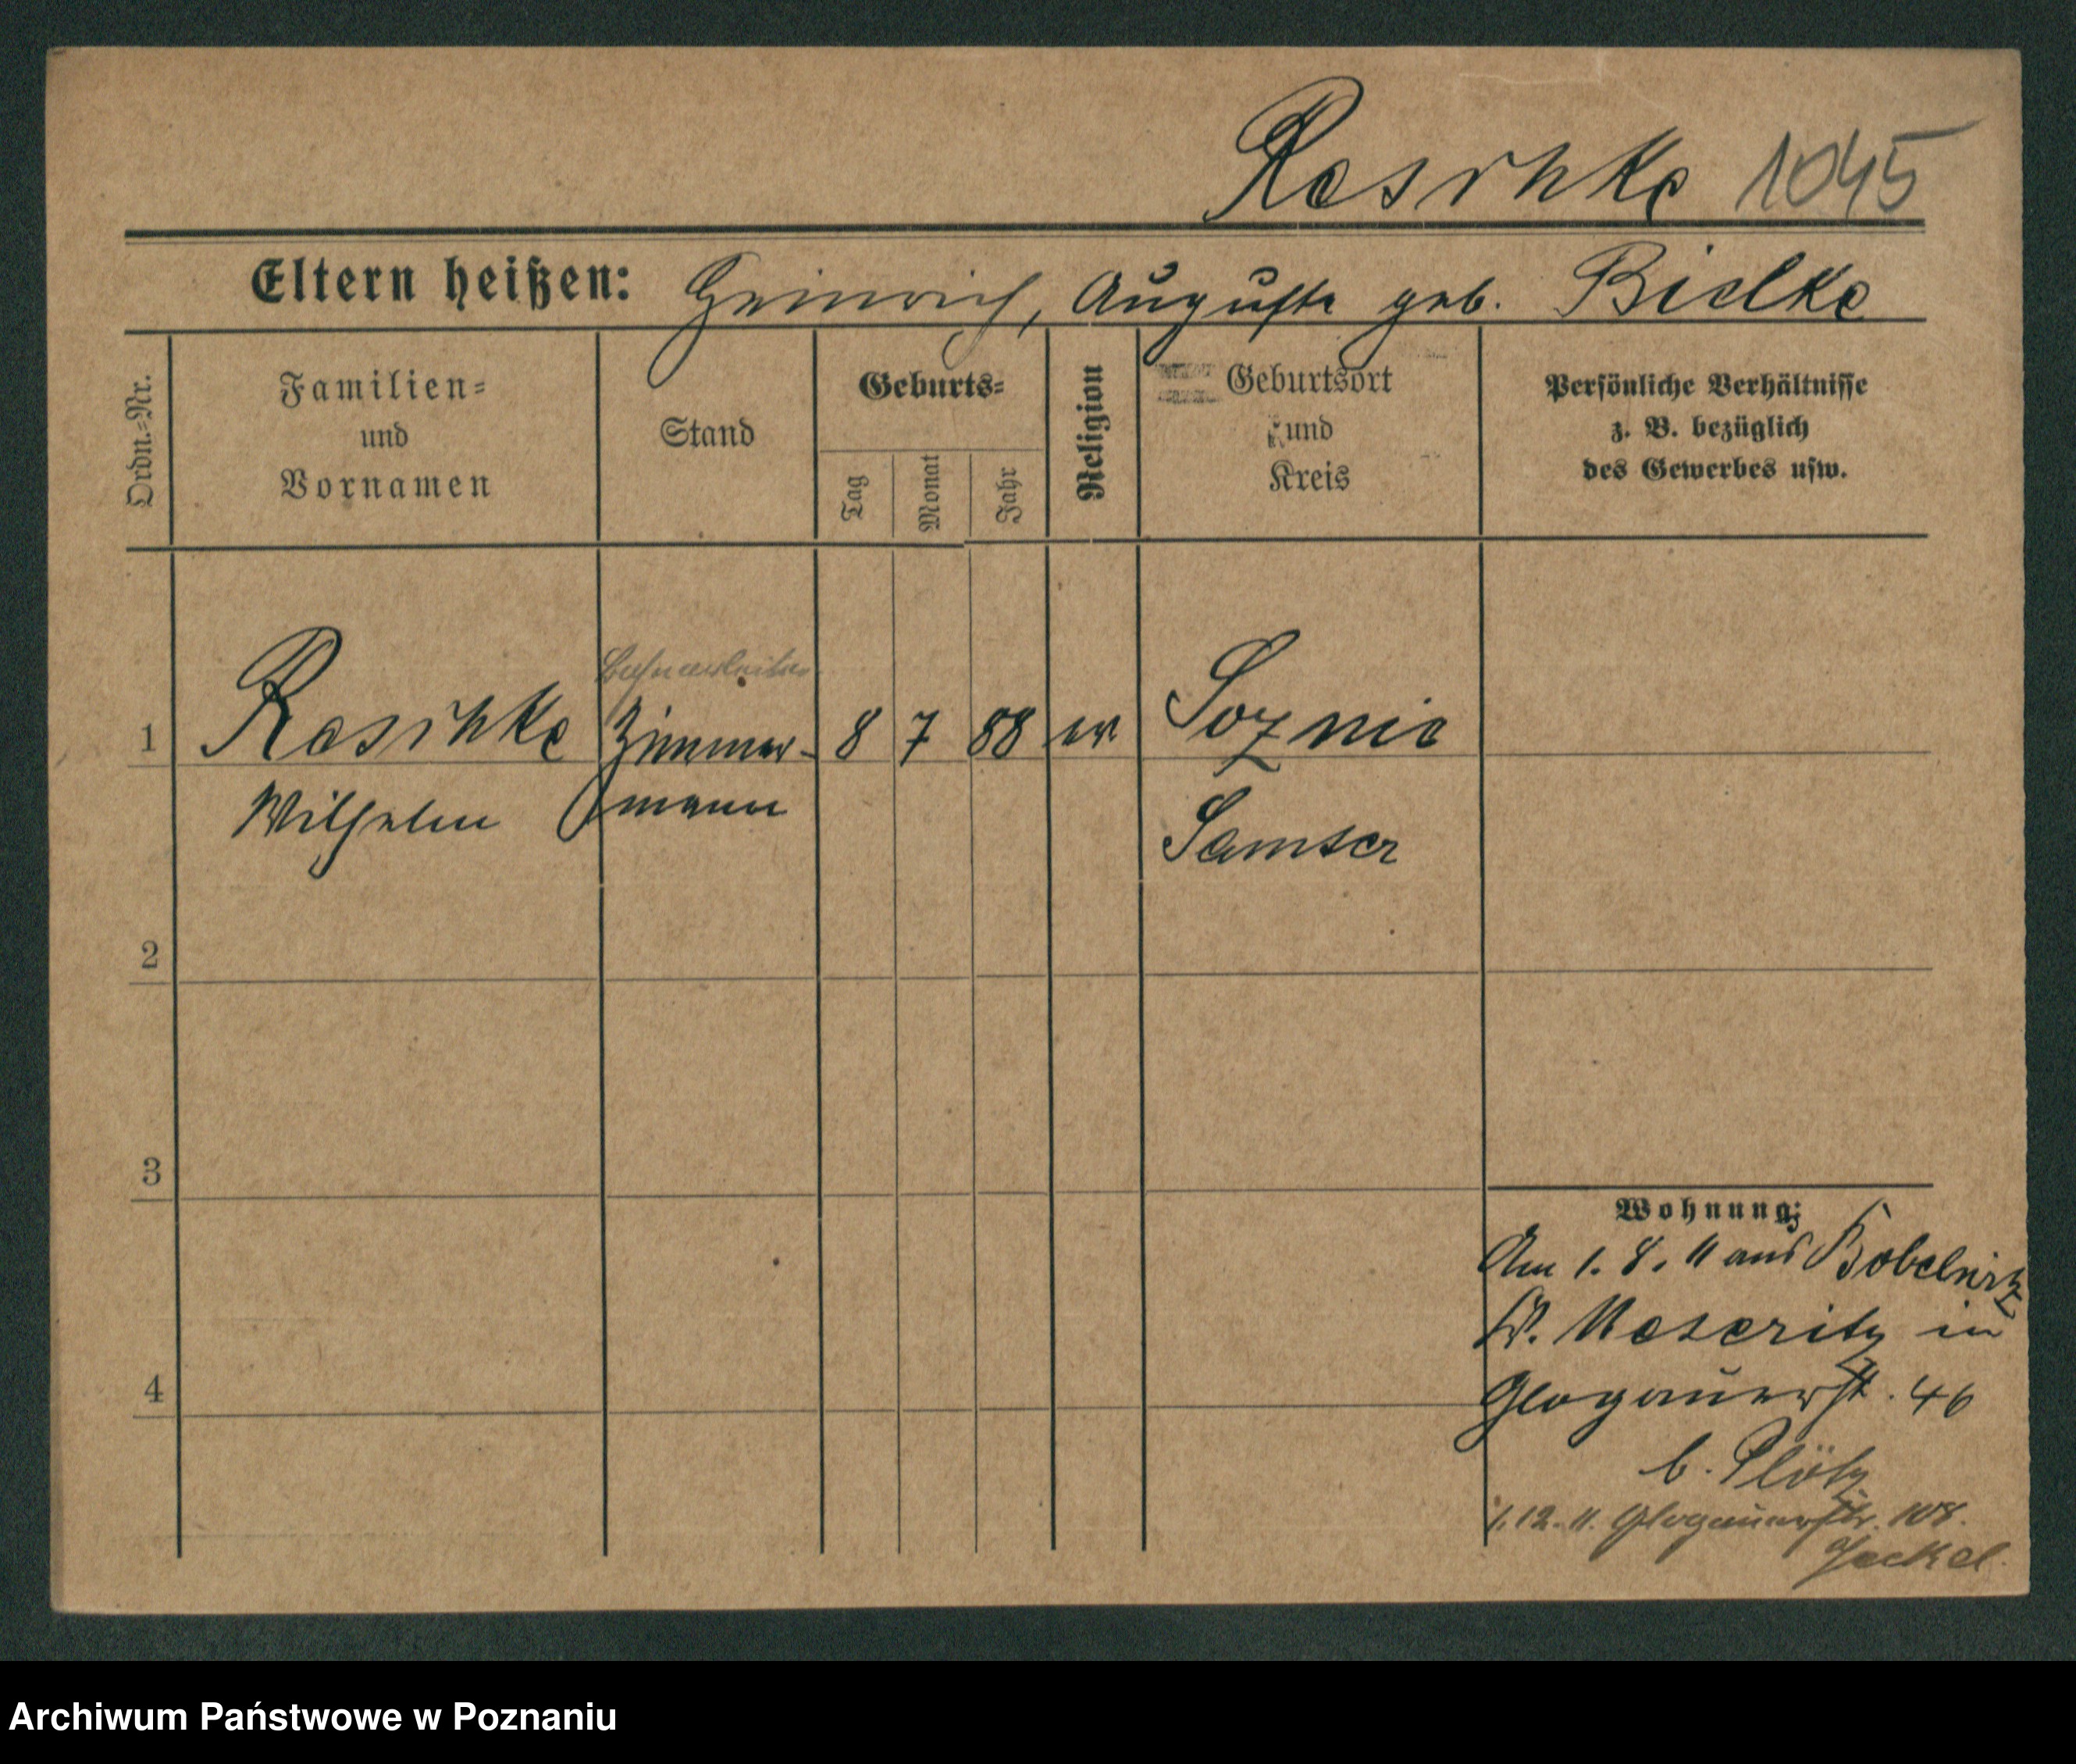 Reschke 1045
Eltern heißen: Heinrich, Auguste geb. Bielke
Ordn.-Nr.
Familien-
und
Vornamen
Stand
Geburts-
Tag
Monat
Jahr
Religion
Geburtsort
und
Kreis
Persönliche Verhältnisse
z. B. bezüglich
des Gewerbes usw.
Bahnarbeiter
1 Reschke Zimmer- 8 7 88 ev
Wilhelm mann Samter
2
3
4
Wohnung:
Am 1. 8. 11 aus Bobelwitz
Kr. Meseritz in
Glogauerst. 46
b. Plötz
1.12.11. Glogauerstr. 108.
Jeckel
Archiwum Państwowe w Poznaniu